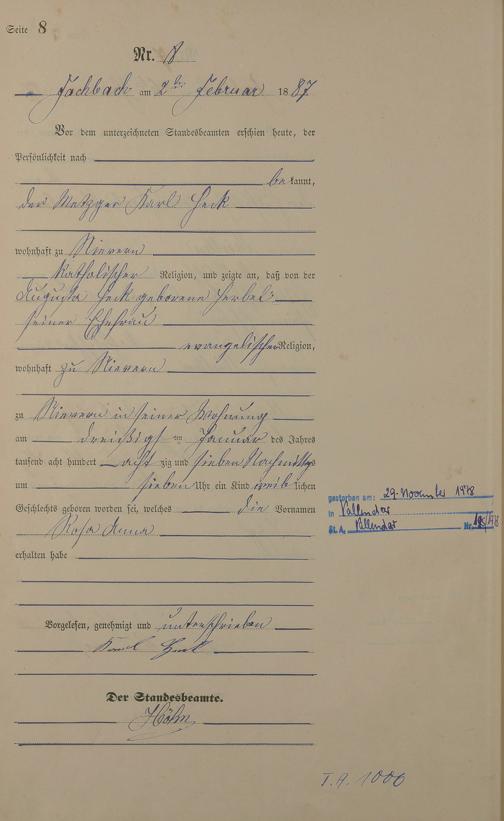 Seite 8
Nr. 8
Fachbach am 2ten Februar 1887
Vor dem unterzeichneten Standesbeamten erschien heute, der
Persönlichkeit nach
bekannt,
der Metzger Karl Heck
wohnhaft zu Nievern
katholischer Religion, und zeigte an, daß von der
Augusta Heck geborene Herbel
seiner Ehefrau
evangelischer Religion,
wohnhaft zu Nievern
zu Nievern in seiner Wohnung
am dreißigst en Januar des Jahres
tausend acht hundert acht zig und sieben Nachmittags
um sieben Uhr ein Kind weib lichen
Geschlechts geboren worden sei, welches die Vornamen
Rosa Anna
erhalten habe
Vorgelesen, genehmigt und unterschrieben
Karl Heck
Der Standesbeamte.
Höhn
gestorben am: 29. November 1978
in Vallendar
St. A. Vallendar Nr.
T. A. 1000